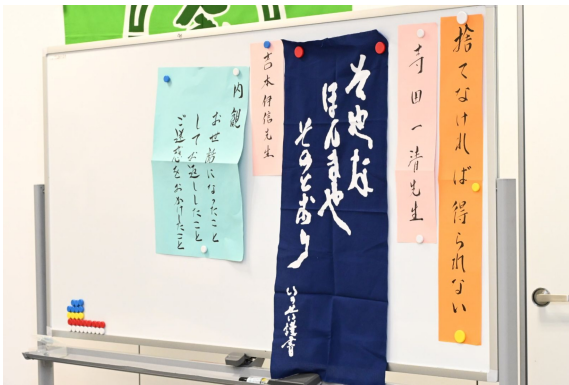 捨てなければ得られない
寺田一清先生
そやな
ほんまや
そのとおり
吉本伊信先生
内観
お世話になったこと
してお返ししたこと
ご迷惑をおかけしたこと